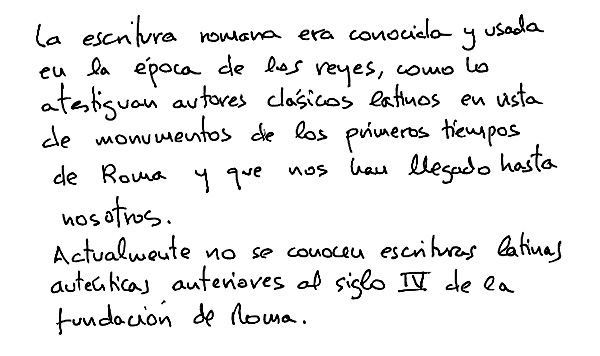 La escritura romana era conocida y usada
en la época de los reyes, como lo
atestiguan autores clásicos latinos en vista
de monumentos de los primeros tiempos
de Roma y que nos han llegado hasta
nosotros.
Actualmente no se conocen escrituras latinas
auténticas anteriores al siglo IV de la
fundación de Roma.